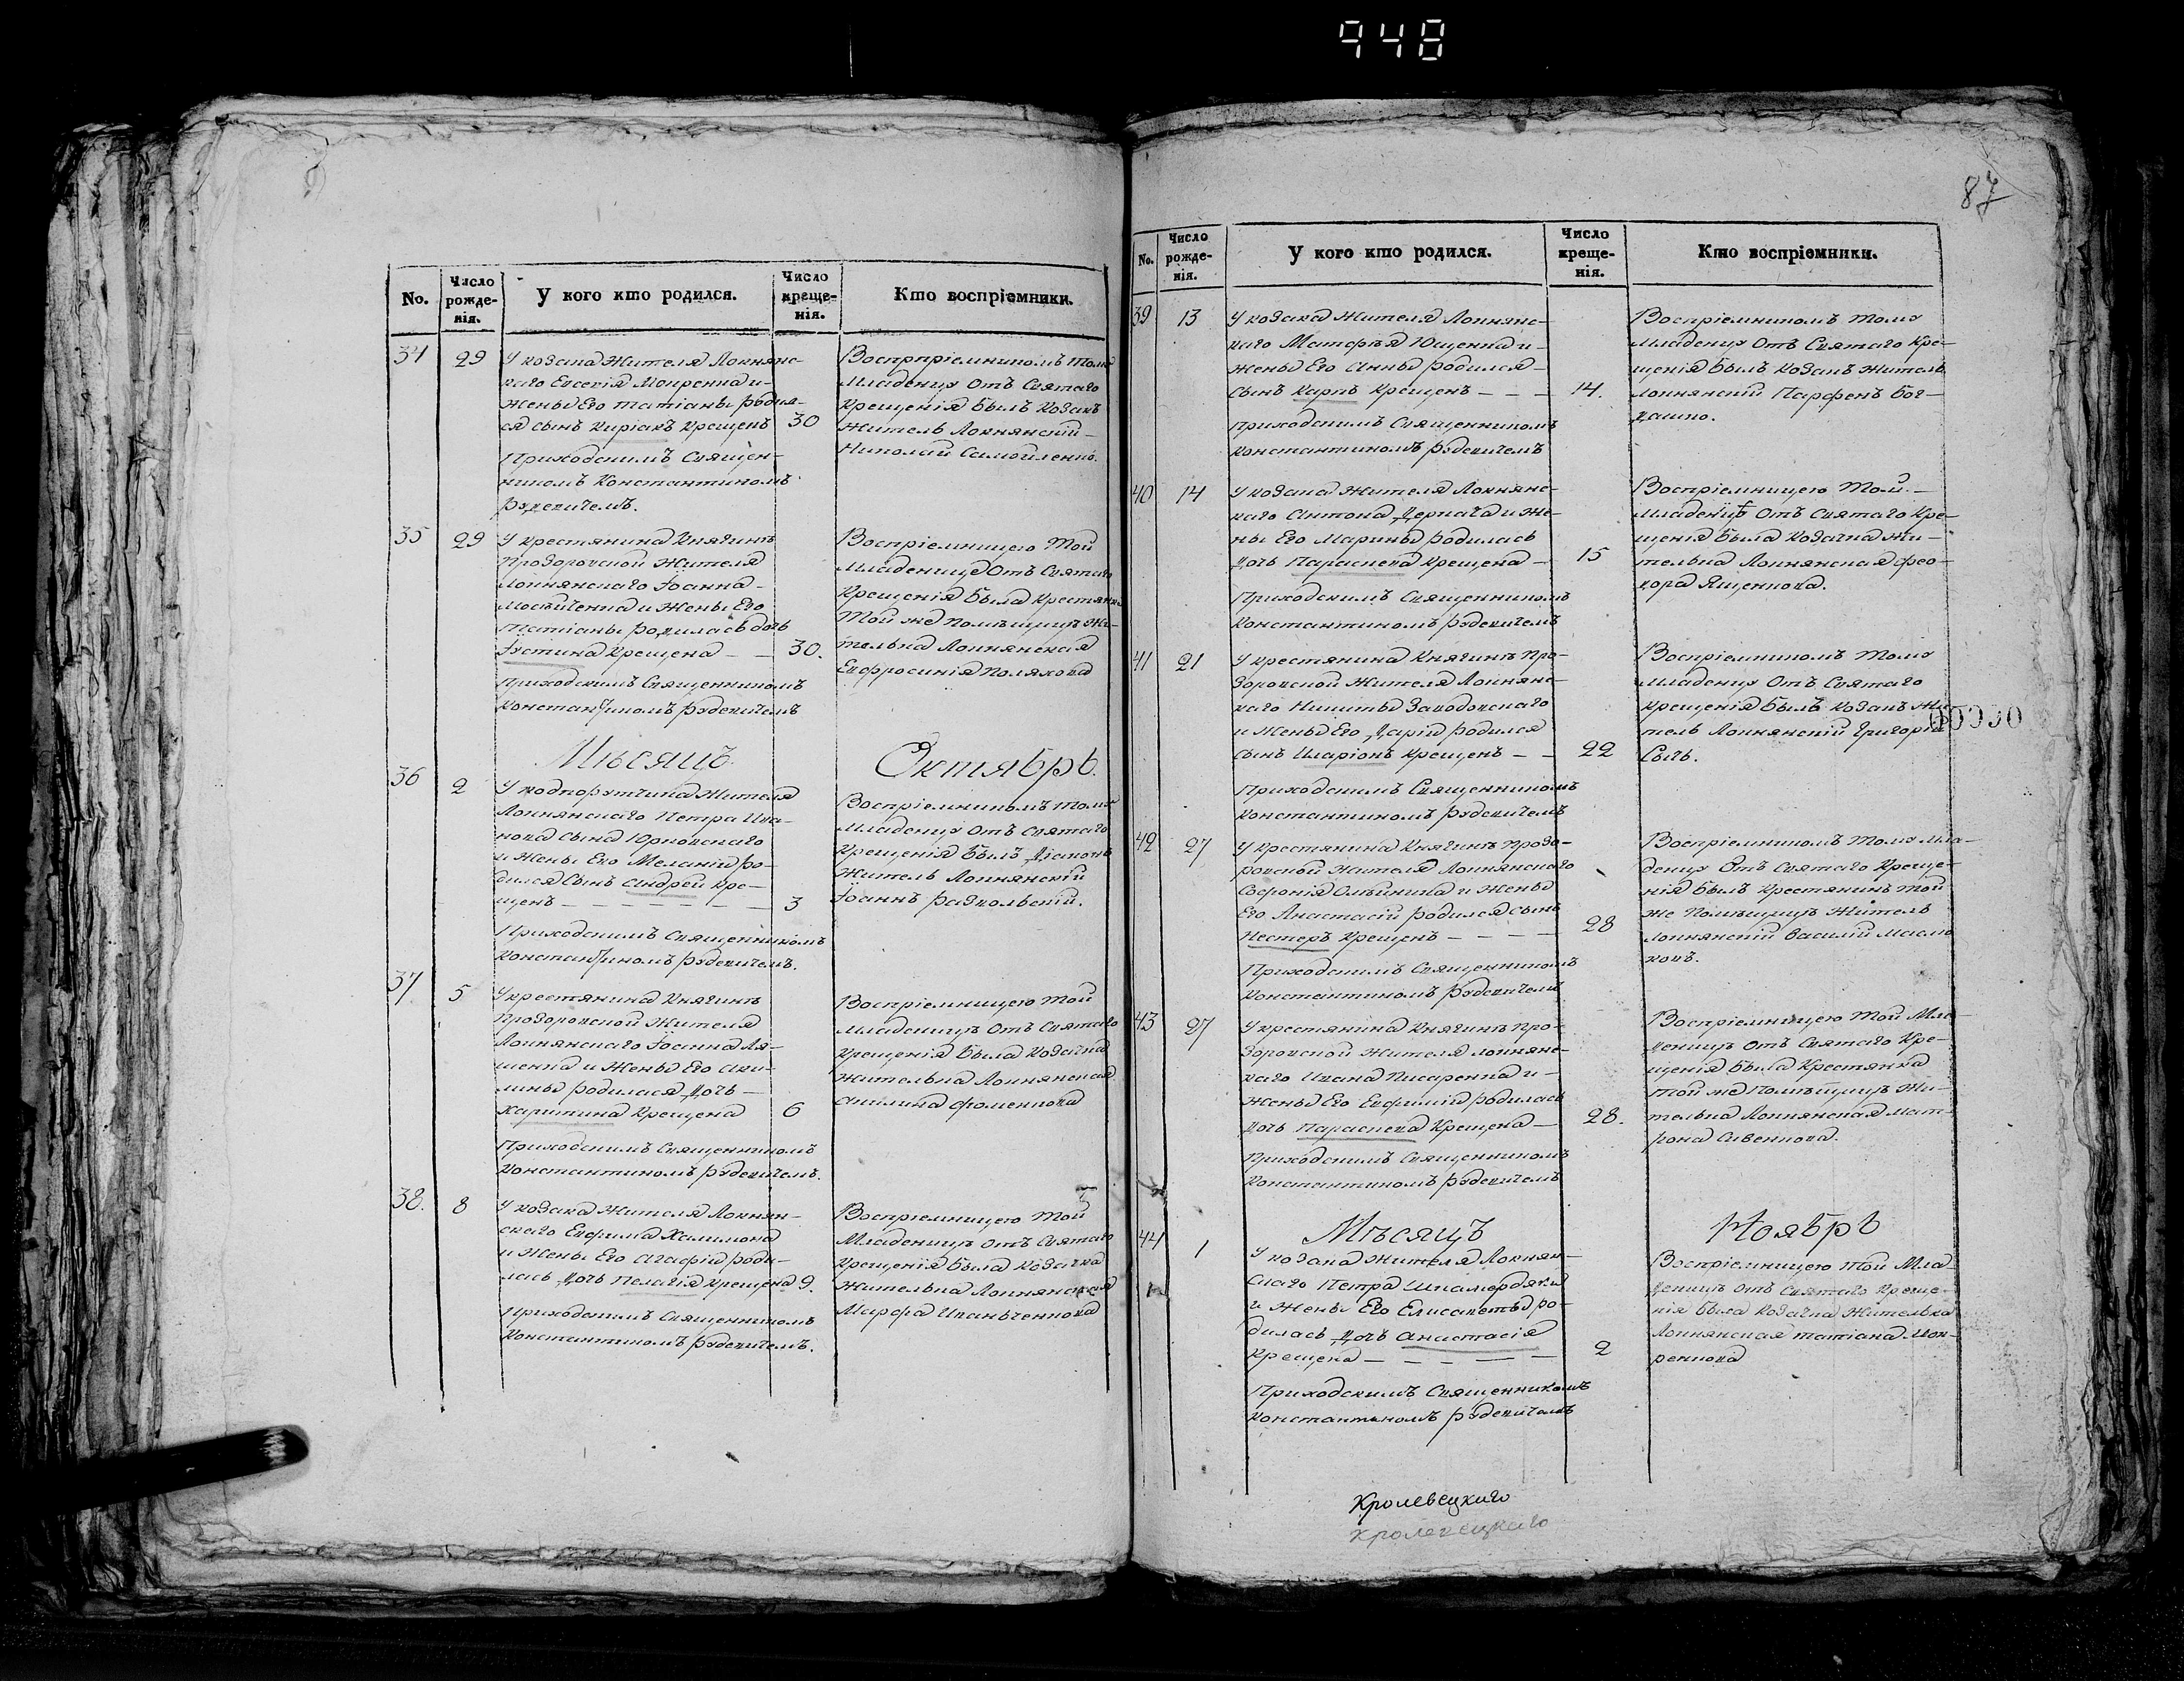 948
No.
Число рожденія.
У кого кто родился.
Число крещенія.
Кто воспріемники.
34
29
У козака Жителя Локнянс-
каго Евсевія Мокренка и-
жены Его Татіаны Родил-
ся сынъ Киріакъ Крещенъ
30
Приходскимъ Священ-
никомъ Константиномъ
Рудевичемъ.
Воспрпріемникомъ Тому
Младенцу Отъ Святаго
Крещенія Былъ Козакъ
Житель Локнянскій-
Николай Самойленко.
35
29
У крестянина Княгинѣ
Прозоровской Жителя
Локнянскаго Іоанна-
и Жены Его
Татіаны родилась дочь
Іустина Крещена - -
30.
Приходскимъ Священникомъ
Константиномъ Рудевичемъ
Воспріемницею Той
Младенице Отъ Святаго
Крещенія Была Крестянка
Той же помѣщицѣ Жи-
телька Локнянская
Евфросинія Поляхова
Мѣсяцъ.
Октябрь.
36
2
Жителя
Локнянскаго Петра Ива-
нова Сына Юрковскаго
и Жены Его Меланіи Ро-
дился Сынъ Андрей Кре-
щенъ - - - - - - -
3
Приходскимъ Священникомъ
Константиномъ Рудевичемъ.
Воспріемникомъ Тому
Младенцу Отъ Святаго
Крещенія Былъ Діаконъ
Житель Локнянскій
Іоаннъ
37
5
У крестянина Княгинѣ
Прозоровской Жителя
Локнянскаго Іоанна Ля-
шенка и Жены Его Аки-
лины Родилася Дочь -
Харитина Крещена
6
Приходскимъ Священникомъ
Константиномъ Рудевичемъ.
Воспріемницею Той
Младеницѣ Отъ Святаго
Крещенія Была Козачка
Жителька Локнянская
Акилина Фоменкова
38.
8
У козака Жителя Локнян-
скаго Евфима Халимона
и Жены Его Агафіи Роди-
лась Дочь Пелагія Крещена
9.
Приходскимъ Священникомъ
Константиномъ Рудевичемъ.
Воспріемницею Той
Младеницѣ отъ Святаго
Крещенія Была Козачка
Жителька Локнянская
Марфа Иваньченкова
87
No.
Число рожденія.
У кого кто родился.
Число крещенія.
Кто воспріемники.
39
13
У козака Жителя Локнянс-
каго Матфѣя Ющенка и-
жены Его Анны Родился-
Сынъ Карпъ Крещенъ - - -
14.
Приходскимъ Священникомъ
Константиномъ Рудевичемъ
Воспріемникомъ Тому
Младенцу Отъ Святаго Кре-
щенія Былъ Козакъ Житель
Локнянскій Парфенъ Бог-
дашко.
40
14
У козака Жителя Локнянс-
каго Антона Деркача и Же-
ны Его Марины Родилась
Дочь Параскева Крещена -
15
Приходскимъ Священникомъ
Константиномъ Рудевичемъ
Воспріемницею Той -
Младеницѣ Отъ Святаго Кре-
щенія Была Козачка Жи-
телька Локнянская Фео-
дора Ященкова.
41
21
У крестянина Княгинѣ Про-
зоровской Жителя Локнянс-
каго Никиты Заводовскаго
и Жены Его Даріи Родился
Сынъ Иларіонъ Крещенъ - -
22
Приходскимъ Священникомъ
Константиномъ Рудевичемъ
Воспріемникомъ Тому
Младенцу Отъ Святаго
Крещенія Былъ Козакъ Жи-
тель Локнянскій Григорій
Сычь.
42
27
У крестянина Княгинѣ Прозо-
ровской Жителя Локнянскаго
Софонія Олѣйника и Жены
Его Анастасіи Родился Сынъ
Нестеръ Крещенъ - - - -
28
Приходскимъ Священникомъ
Константиномъ Рудевичемъ
Воспріемникомъ Тому мла-
денцу Отъ Святаго Креще-
нія Былъ Крестянинъ Той
же Помѣщицѣ Житель
Локнянскій Василій Масло
ковъ.
43
27
У крестянина Княгинѣ Про-
зоровской Жителя Локнянс-
каго Ивана Писаренка и-
Жены Его Евфиміи Родилась
Дочь Параскева Крещена -
28.
Приходскимъ Священникомъ
Константиномъ Рудевичемъ
Воспріемницею Той Мла-
деницѣ Отъ Святаго Кре-
щенія Была Крестянка
Той же Помѣщицѣ Жи-
телька Локнянская Мат-
рона Сивенкова.
Мѣсяцъ
Ноябрь
44
1
У козака Жителя Локнян-
скаго Петра
и Жены Его Елисаветы Ро-
дилась Дочь Анастасія
Крещена - - - - -
2
Приходскимъ Священникомъ
Константиномъ Рудевичемъ
Воспріемницею Той Мла
деницѣ Отъ Святаго Креще-
нія Была Козачка Жителька
Локнянская Татіана Мок-
ренкова
Кролевецкаго
Кролевецкаго